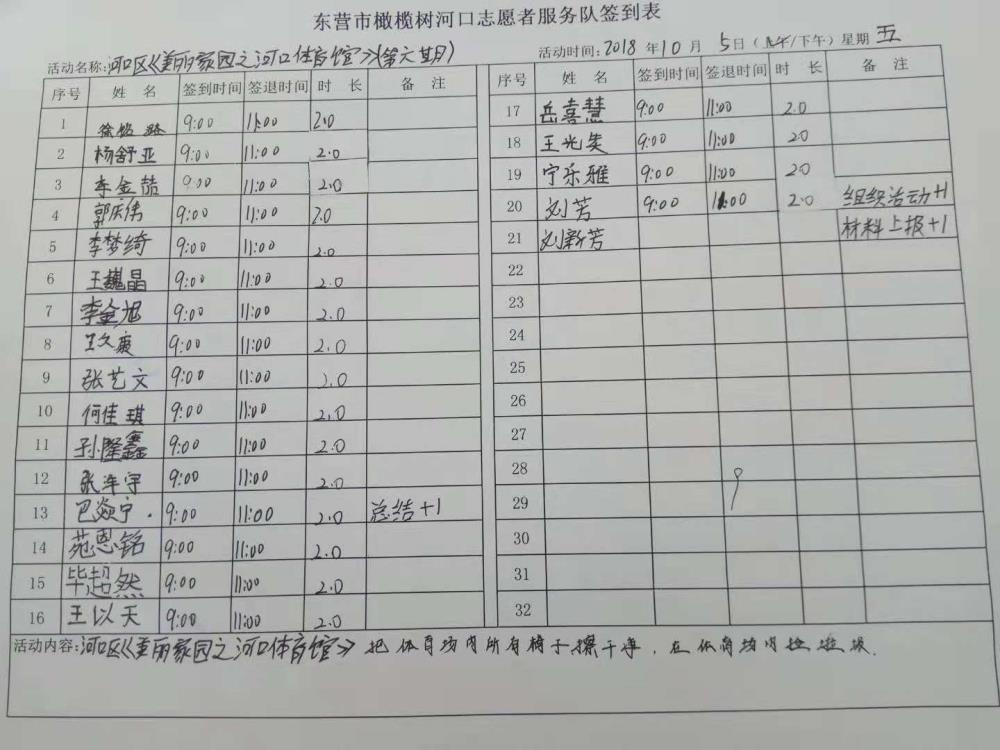 东营市橄榄树河口志愿者服务队签到表
活动名称:河口区《美丽家园之河口体育馆》(第六期)
活动时间:2018年10月5日(上午/下午)星期五
序号 姓 名 签到时间 签退时间 时 长 备 注
1 徐 9:00 11:00 2.0
2 杨舒亚 9:00 11:00 2.0
3 李金喆 9:00 11:00 2.0
4 郭庆伟 9:00 11:00 2.0
5 李梦绮 9:00 11:00 2.0
6 王巍晶 9:00 11:00 2.0
7 李金旭 9:00 11:00 2.0
8 王文爽 9:00 11:00 2.0
9 张艺文 9:00 11:00 2.0
10 何佳琪 9:00 11:00 2.0
11 孙隆鑫 9:00 11:00 2.0
12 张连宇 9:00 11:00 2.0
13 巴焱宁. 9:00 11:00 2.0 总结+1
14 苑恩铭 9:00 11:00 2.0
15 毕超然 9:00 11:00 2.0
16 王以天 9:00 11:00 2.0
序号 姓 名 签到时间 签退时间 时 长 备 注
17 岳喜慧 9:00 11:00 2.0
18 王光 9:00 11:00 2.0
19 宁乐雅 9:00 11:00 2.0
20 刘芳 9:00 11:00 2.0 组织活动+1
21 刘新芳 材料上报+1
22
23
24
25
26
27
28
29
30
31
32
活动内容:河口区《美丽家园之河口体育馆》把体育场内所有椅子擦干净,在体育场内捡垃圾.